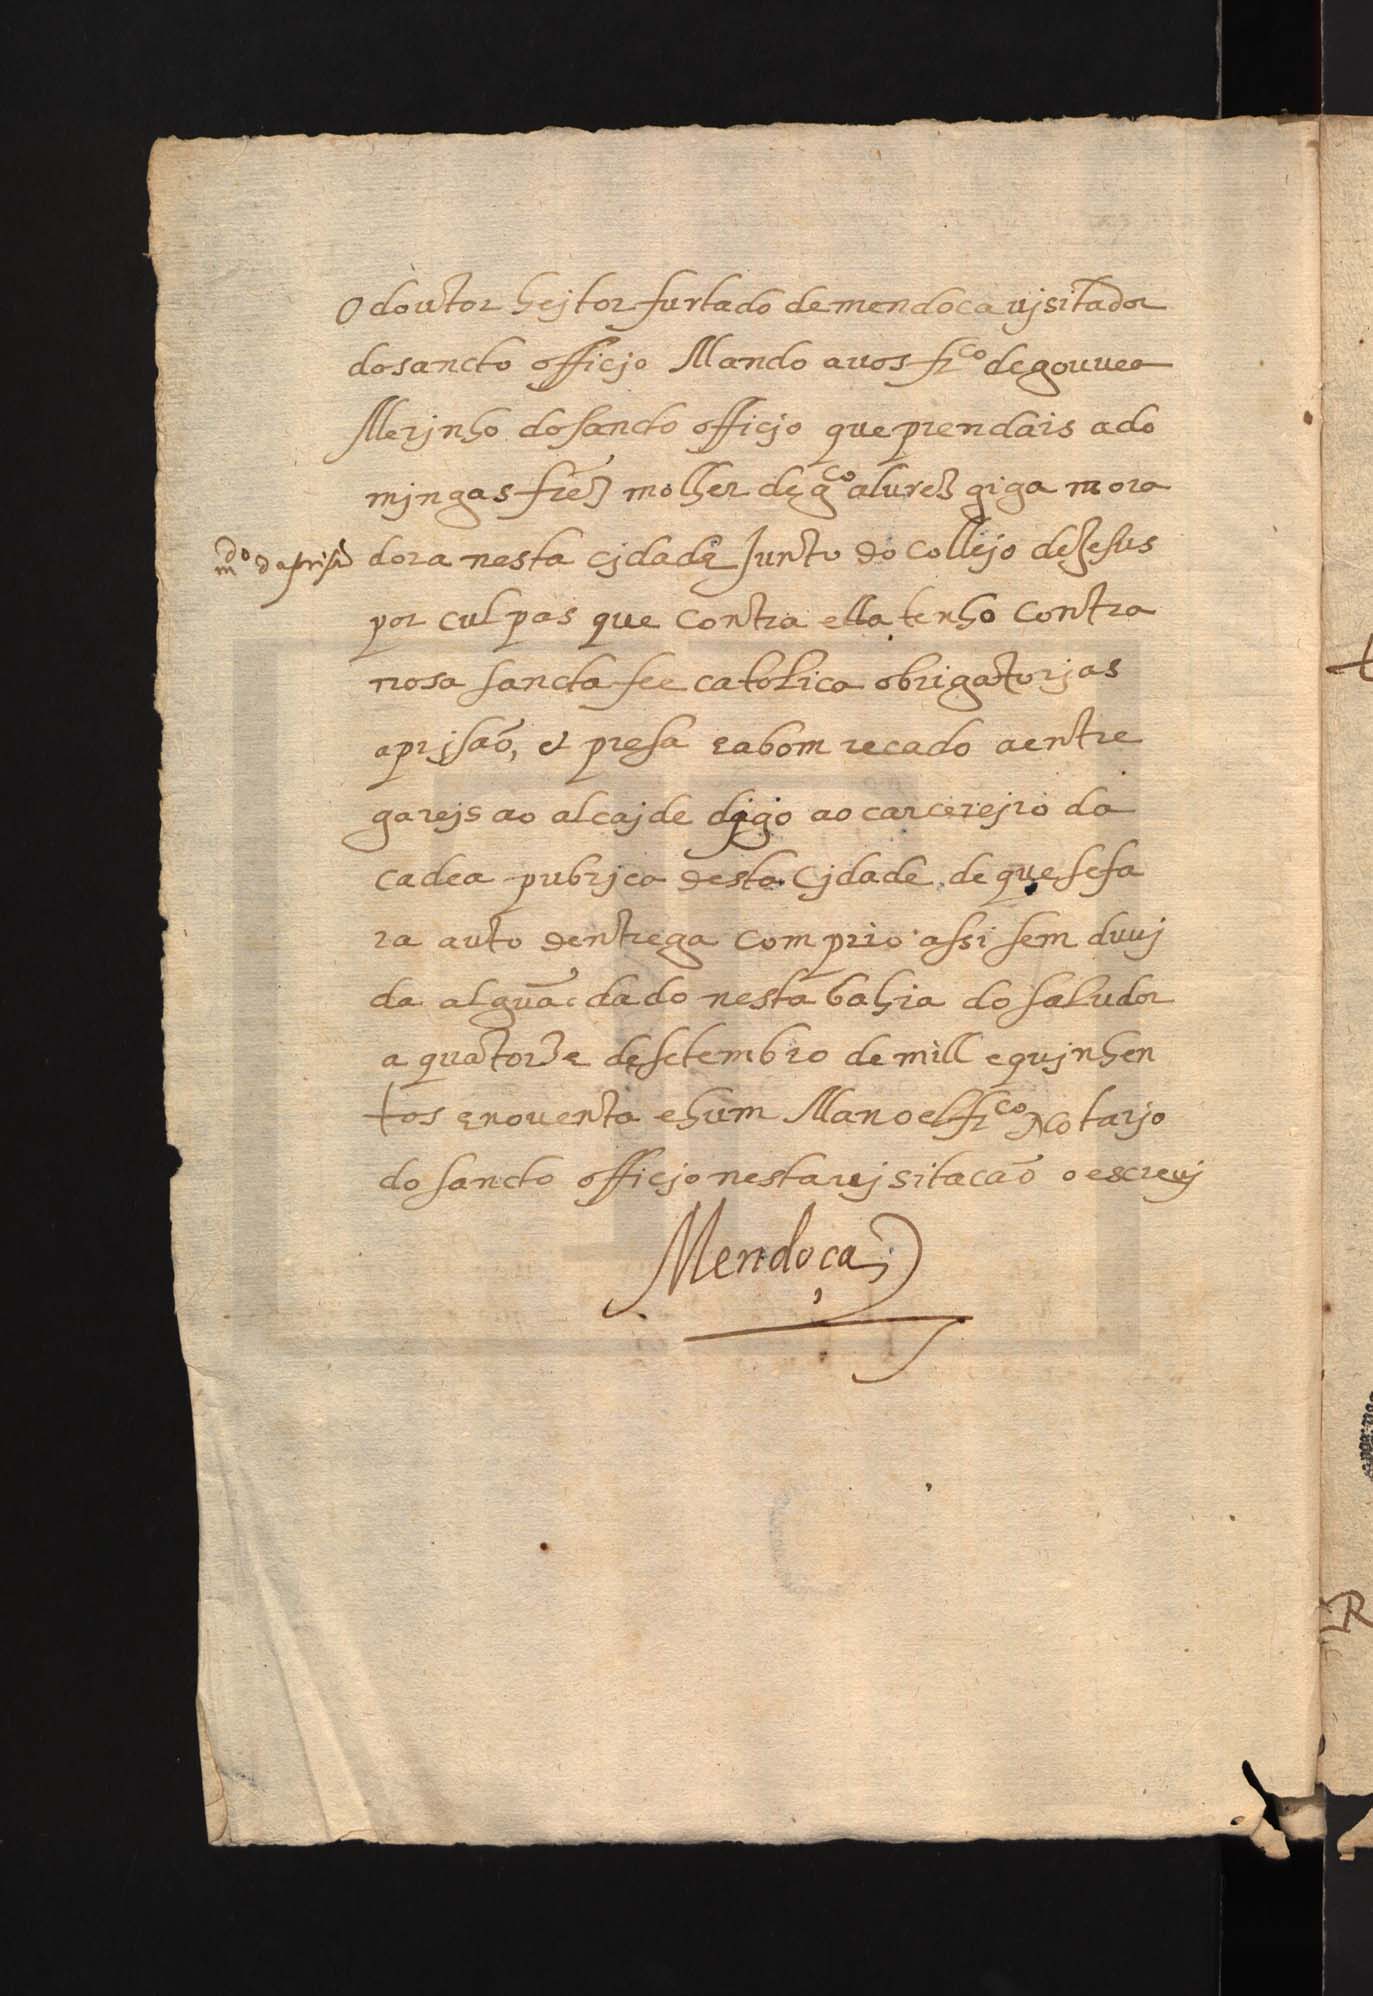 O doutor hejtor furtado de mendoca vjsitador
do sancto officjo Mando a vos frco de gouvea
Merjnho do sancto officjo que prendais a do
mjngas frz molher de gco alurez giga mora
mdo da prisão
dora nesta cjdade Junto do collejo de Jesus
por culpas que contra ella tenho contra
nosa sancta fee catolica obrigatorjas
a prjsaõ, et presa e a bom recado a entre
garejs ao alcajde djgo ao carcerejro da
cadea pubrjca desta Cjdade de que se fa
ra auto dentrega comprio assi sem duuj
da alguã dado nesta bahia do saluador
a quatorze de setembro de mill e qujnhen
tos e noventa e hum Manoel frco Notarjo
do sancto officjo nesta vjsitacaõ o escreuj
Mendoça